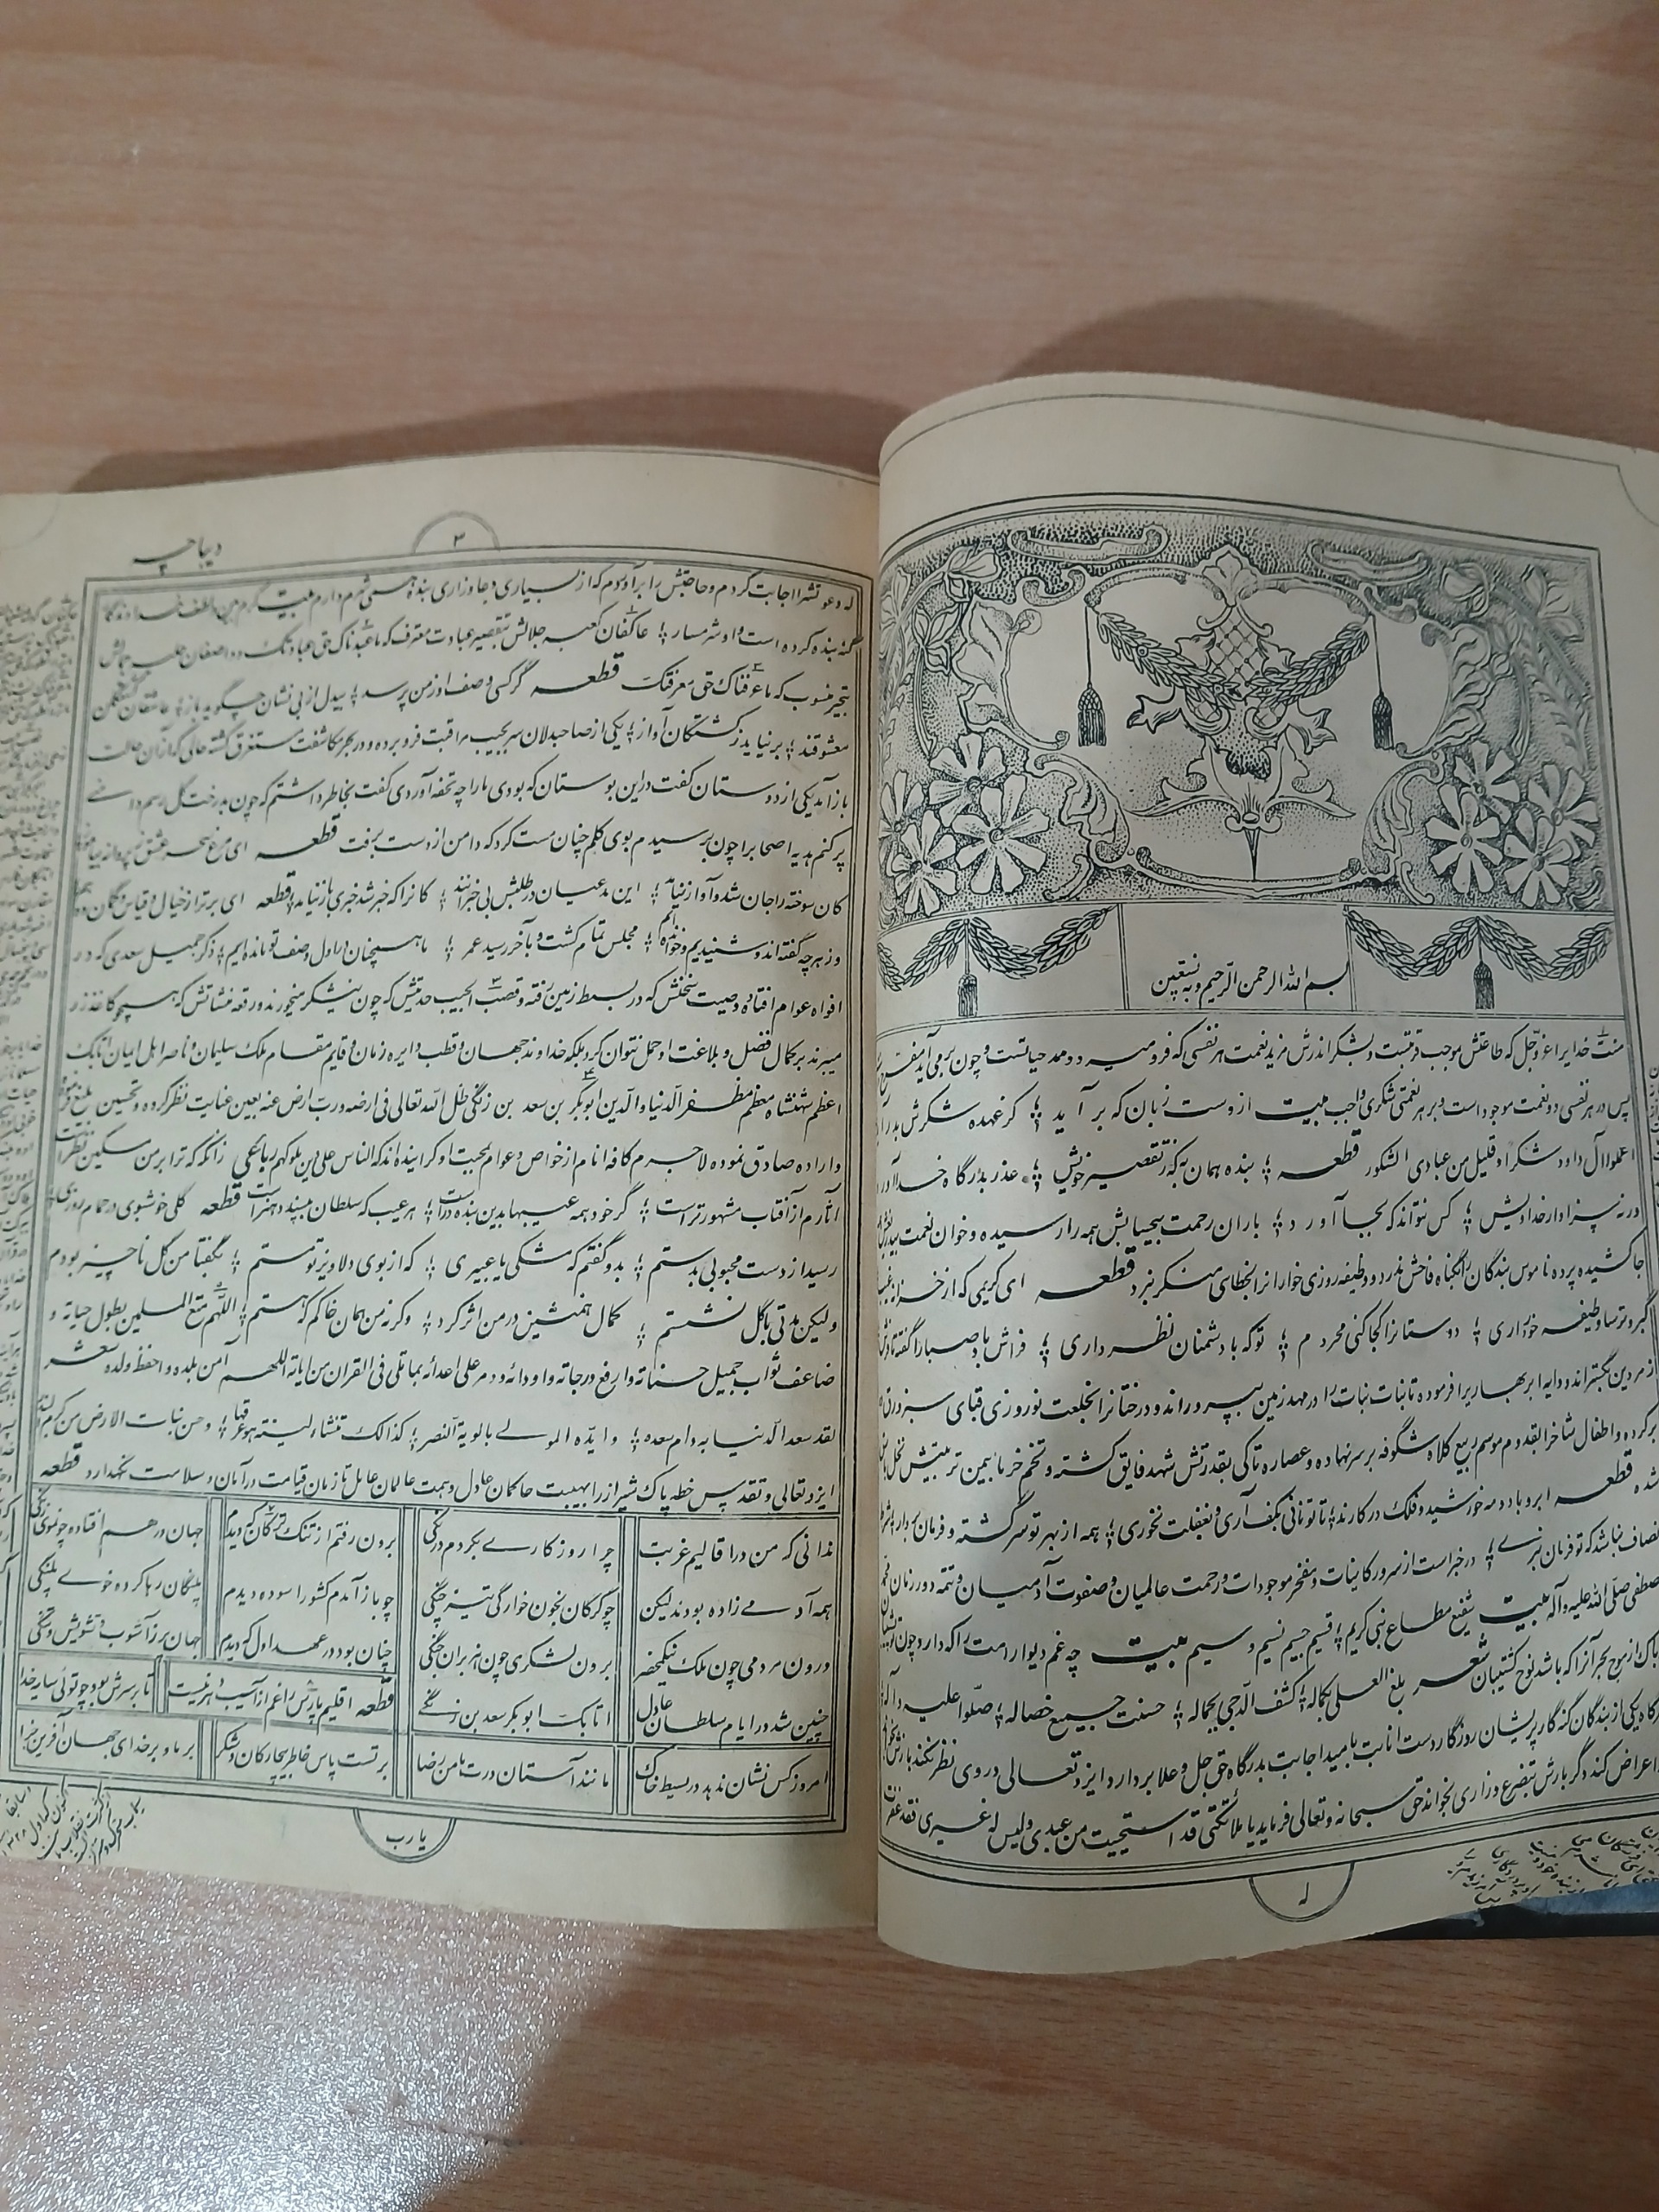 بسم الله الرحمن الرحیم و به نستعین
منت خدایرا عز و جل که طاعتش موجب قربتست و بشکر اندرش مزید نعمت هر نفسی که فرو میرود ممد حیاتست و چون برمی آید مفرح
پس در هر نفسی دو نعمت موجود است و بر هر نعمتی شکری واجب بیت از دست زبان که بر آید ؛ کز عهده شکرش بدر آ
اعملوا آل داود شکرا و قلیل من عبادی الشکور قطعه ؛ بنده همان به که ز تقصیر خویش ؛ عذر بدرگاه خدا آورد
ورنه سزاوار خداوندیش ؛ کس نتواند که بجا آورد ؛ باران رحمت بیحسابش همه را رسیده و خوان نعمت بیدریغش
جا کشیده پرده ناموس بندگان را بگناه فاحش ندرد و وظیفه روزی خوارانرا بخطای منکر نبرد قطعه ای کریمی که از خزانه غیب
گبر و ترسا وظیفه خور داری ؛ دوستانرا کجا کنی محروم ؛ تو که با دشمنان نظر داری ؛ فراش باد صبا را گفته تا فرش
زمردین بگستراند و دایه ابر بهاریرا فرموده تا بنات نبات را در مهد زمین بپروراند و درختانرا بخلعت نوروزی قبای سبز ورق
بر کرده و اطفال شاخرا بقدوم موسم ربیع کلاه شکوفه بر سر نهاده و عصاره تاکی بقدرتش شهد فایق گشته و تخم خرما بیمن تربیتش نخل باسق
شده قطعه ابر و باد و مه خورشید و فلک در کارند ؛ تا تو نانی بکف آری و بغفلت نخوری ؛ همه از بهر تو سرگشته و فرمان بردار ؛ شرط
انصاف نباشد که تو فرمان نبری ؛ در خبر است از سرور کاینات و مفخر موجودات و رحمت عالمیان و صفوت آدمیان و تتمه دور زمان محمد
مصطفی صلی الله علیه و آله بیت شفیع مطاع نبی کریم ؛ قسیم جسیم نسیم وسیم بیت چه غم دیوار امت را که دارد چون تو پشتیبان
باک از موج بحر آنرا که باشد نوح کشتیبان شعر بلغ العلی بکماله ؛ کشف الدجی بجماله ؛ حسنت جمیع خصاله ؛ صلوا علیه و آله
گاه یکی از بندگان گنه گار پریشان روزگار دست انابت بامید اجابت بدرگاه حق جل و علا بردارد ایزد تعالی در وی نظر نکند بازش بخواند
اعراض کند دگر بارش بتضرع و زاری بخواند حق سبحانه و تعالی فرماید یا ملائکتی قد استحییت من عبدی و لیس له غیری فقد غفرت
له
دیباچه
۲
له دعوتشرا اجابت کردم و حاجتش را برآوردم که از بسیاری دعا و زاری بنده همی شرم دارم بیت کرم بین و لطف خداوندگار
گنه بنده کرده است و او شرمسار ؛ عاکفان کعبه جلالش بتقصیر عبادت معترف که ما عبدناک حق عبادتک و واصفان حلیه جمالش
بتحیر منسوب که ما عرفناک حق معرفتک قطعه گر کسی وصف او ز من پرسد ؛ بیدل از بی نشان چگوید باز ؛ عاشقان کشتگان
معشوقند ؛ بر نیاید ز کشتگان آواز ؛ یکی از صاحبدلان سر بجیب مراقبت فرو برده و در بحر مکاشفت مستغرق گشته حالی که از آن حالت
باز آمد یکی از دوستان گفت در این بوستان که بودی ما را چه تحفه آوردی گفت بخاطر داشتم که چون بدرخت گل رسم دامنی
پر کنم هدیه اصحابرا چون برسیدم بوی گلم چنان مست کرد که دامن از دست برفت قطعه ای مرغ سحر عشق ز پروانه بیاموز
کان سوخته را جان شد و آواز نیامد ؛ این مدعیان در طلبش بی خبرانند ؛ کانرا که خبر شد خبری باز نیامد ؛ قطعه ای برتر از خیال و قیاس و گمان و وهم
وز هر چه گفته اند و شنیدیم و خوانده ایم ؛ مجلس تمام گشت و بآخر رسید عمر ؛ ما همچنان در اول وصف تو مانده ایم ؛ ذکر جمیل سعدی که در
افواه عوام افتاده وصیت سخنش که در بسط زمین رفته و قصب الجیب حدیثش که چون نیشکر میخورند و رقعه منشاتش که همچو کاغذ زر
میبرند بر کمال فضل و بلاغت او حمل نتوان کرد بلکه خداوند جهان و قطب دایره زمان و قایم مقام ملک سلیمان و ناصر اهل ایمان اتابک
اعظم شهنشاه معظم مظفر الدنیا و الدین ابوبکر بن سعد بن زنگی ظل الله تعالی فی ارضه و رب ارض عنه بعین عنایت نظر کرده و تحسین بلیغ فرموده
و اراده صادق نموده لاجرم کافه انام از خواص و عوام بمحبت او گراینده اند که الناس علی دین ملوکهم رباعی زانکه که ترا بر من مسکین نظر است
آثارم از آفتاب مشهورتر است ؛ گر خود همه عیبها بدین بنده در است ؛ هر عیب که سلطان بپسندد هنر است قطعه گلی خوشبوی در حمام روزی ؛
رسید از دست محبوبی بدستم ؛ بدو گفتم که مشکی یا عبیری ؛ که از بوی دلاویز تو مستم ؛ بگفتا من گل ناچیز بودم
ولیکن مدتی با گل نشستم ؛ کمال همنشین در من اثر کرد ؛ وگرنه من همان خاکم که هستم ؛ اللهم متع المسلمین بطول حیاته و
ضاعف ثواب جمیل حسناته وارفع درجاته و اودائه و دمر علی اعدائه بما تلی فی القران من ایاته اللهم آمن بلده و احفظ ولده شعر
لقد سعد الدنیا به دام سعده ؛ و ایده المولی بالویة النصر ؛ کذالک تنشاء لینته هو عرقها ؛ و حسن نبات الارض من کرم البذر
ایزد تعالی و تقدس خطه پاک شیراز را بهیبت حاکمان عادل و همت عالمان عامل تا زمان قیامت در امان و سلامت نگهدارد قطعه
ندانی که من در اقالیم غربت چرا روزگاری بکردم درنگی برون رفتم از تنک ترکان که دیدم جهان در هم افتاده چو موی زنگی
همه آدمی زاده بودند لیکن چو گرکان بخون خوارگی تیز چنگی چو باز آمدم کشور اسوده دیدم پلنگان رها کرده خوی پلنگی
درون مردمی چون ملک نیکمحضر برون لشکری چون هزبران جنگی چنان بود در عهد اول که دیدم جهان پر ز آشوب و تشویش و تنگی
چنین شد در ایام سلطان عادل اتابک ابو بکر سعد بن زنگی قطعه اقلیم پارس را غم از آسیب دهر نیست تا بر سرش بود چو توئی سایه خدا
امروز کس نشان ندهد در بسیط خاک مانند آستان درت مامن رضا بر تست پاس خاطر بیچارکان و شکر بر ما و بر خدای جهان آفرین جزا
یا رب